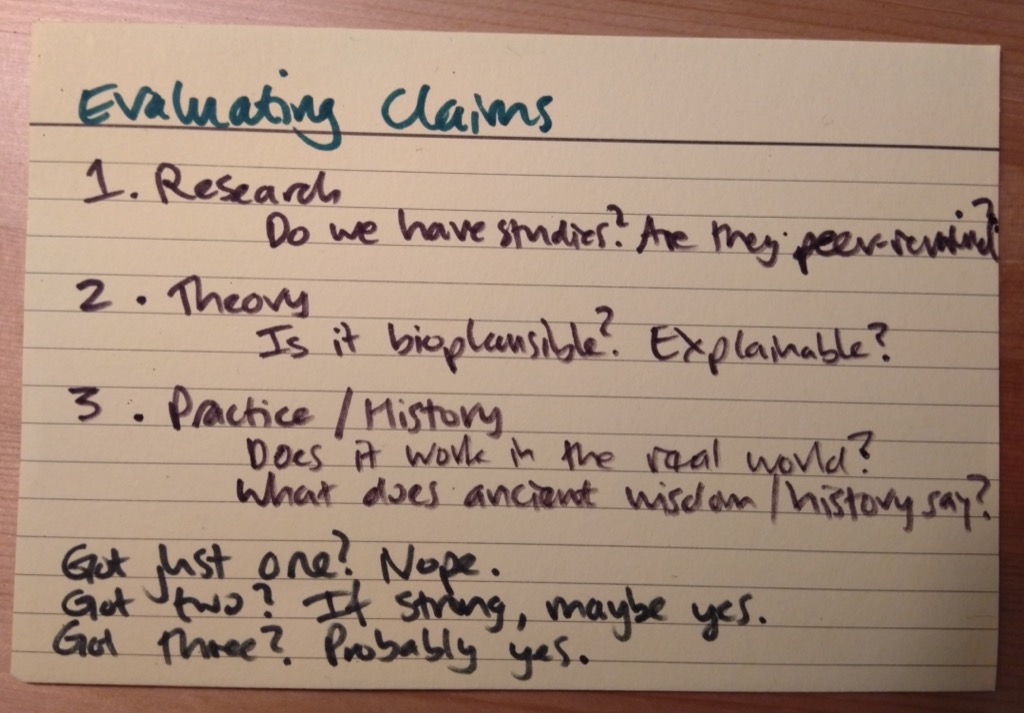 Evaluating Claims
1. Research
Do we have studies? Are they peer-reviewed?
2. Theory
Is it bioplausible? Explainable?
3. Practice / History
Does it work in the real world?
What does ancient wisdom / history say?
Got just one? Nope.
Got two? If strong, maybe yes.
Got three? Probably yes.